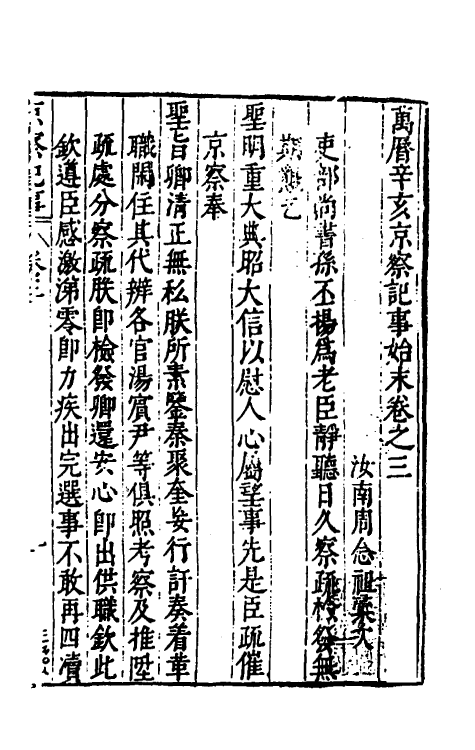 萬曆辛亥京察記事始末卷之三
汝南周念祖
吏部尚書孫丕揚為老臣靜聽日久察疏檢發無
期懇乞
聖明重大典昭大信以慰人心屬望事先是臣疏催
京察奉
聖旨卿清正無私朕所素鑒秦聚奎妄行訐奏着革
職閑住其代辨各官湯賓尹等俱照考察及推陞
疏處分察疏朕即檢發卿還安心即出供職欽此
欽遵臣感激涕零即力疾出完選事不敢再四瀆